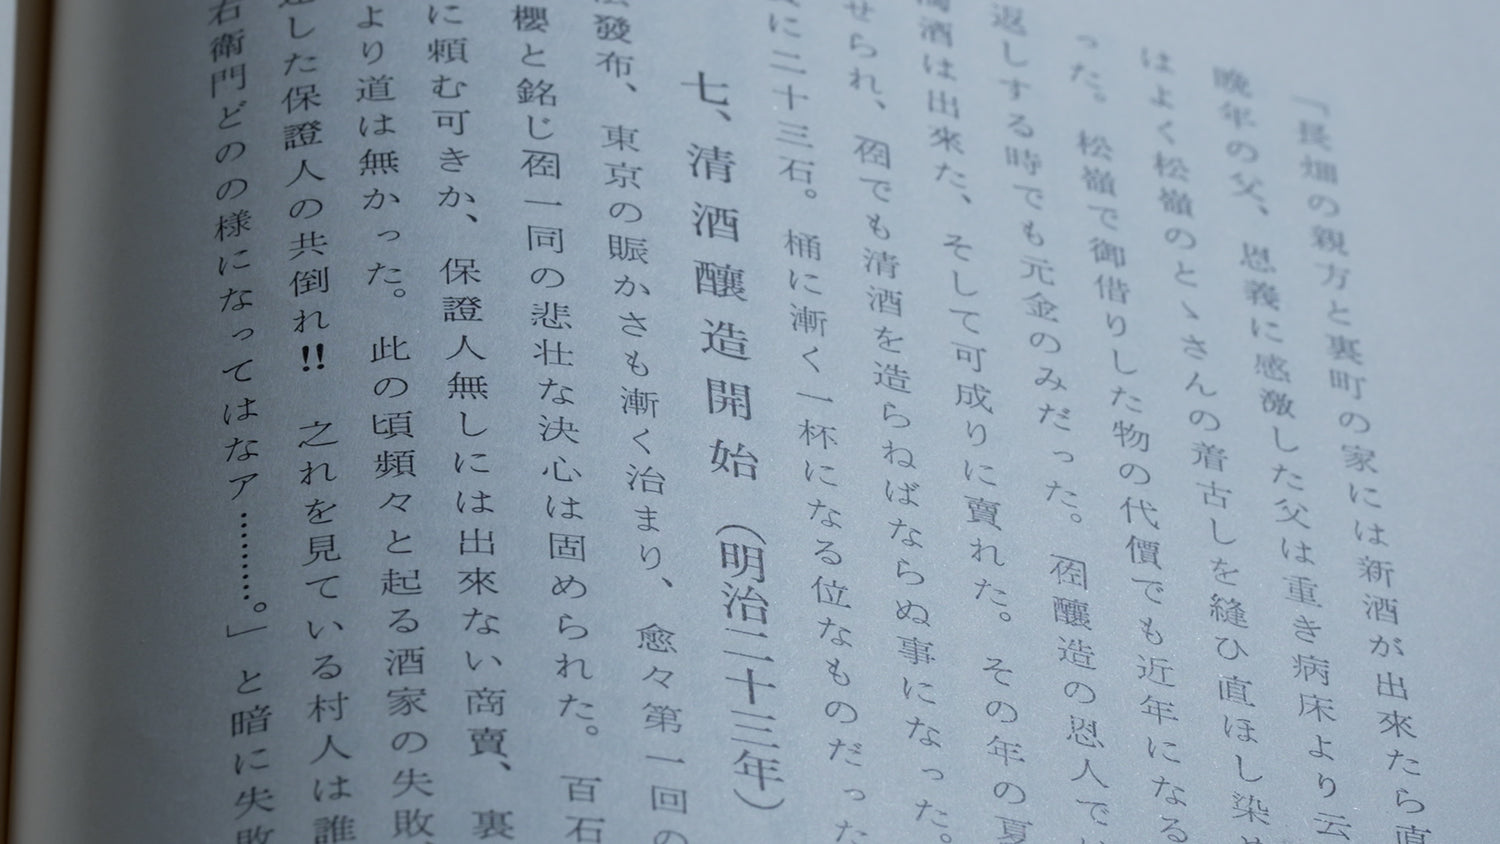 「長畑の親方と裏町の家には新酒が出來たら直
晩年の父、恩義に感激した父は重き病床より云
はよく松嶺のとゝさんの着古しを縫ひ直ほし染め
った。松嶺で御借りした物の代價でも近年になる
返しする時でも元金のみだった。㊑釀造の恩人では
濁酒は出來た、そして可成りに賣れた。その年の夏
せられ、でも清酒を造らねばならぬ事になった。
に二十三石。桶に漸く一杯になる位なものだった
七、清酒釀造開始（明治二十三年）
發布、東京の賑かさも漸く治まり、愈々第一回の
櫻と銘じ一同の悲壮な決心は固められた。百石
に頼む可きか、保證人無しには出來ない商賣、裏
より道は無かった。此の頃頻々と起る酒家の失敗、
達した保證人の共倒れ!!　之れを見ている村人は誰
右衛門どのの様になってはなア………。」と暗に失敗